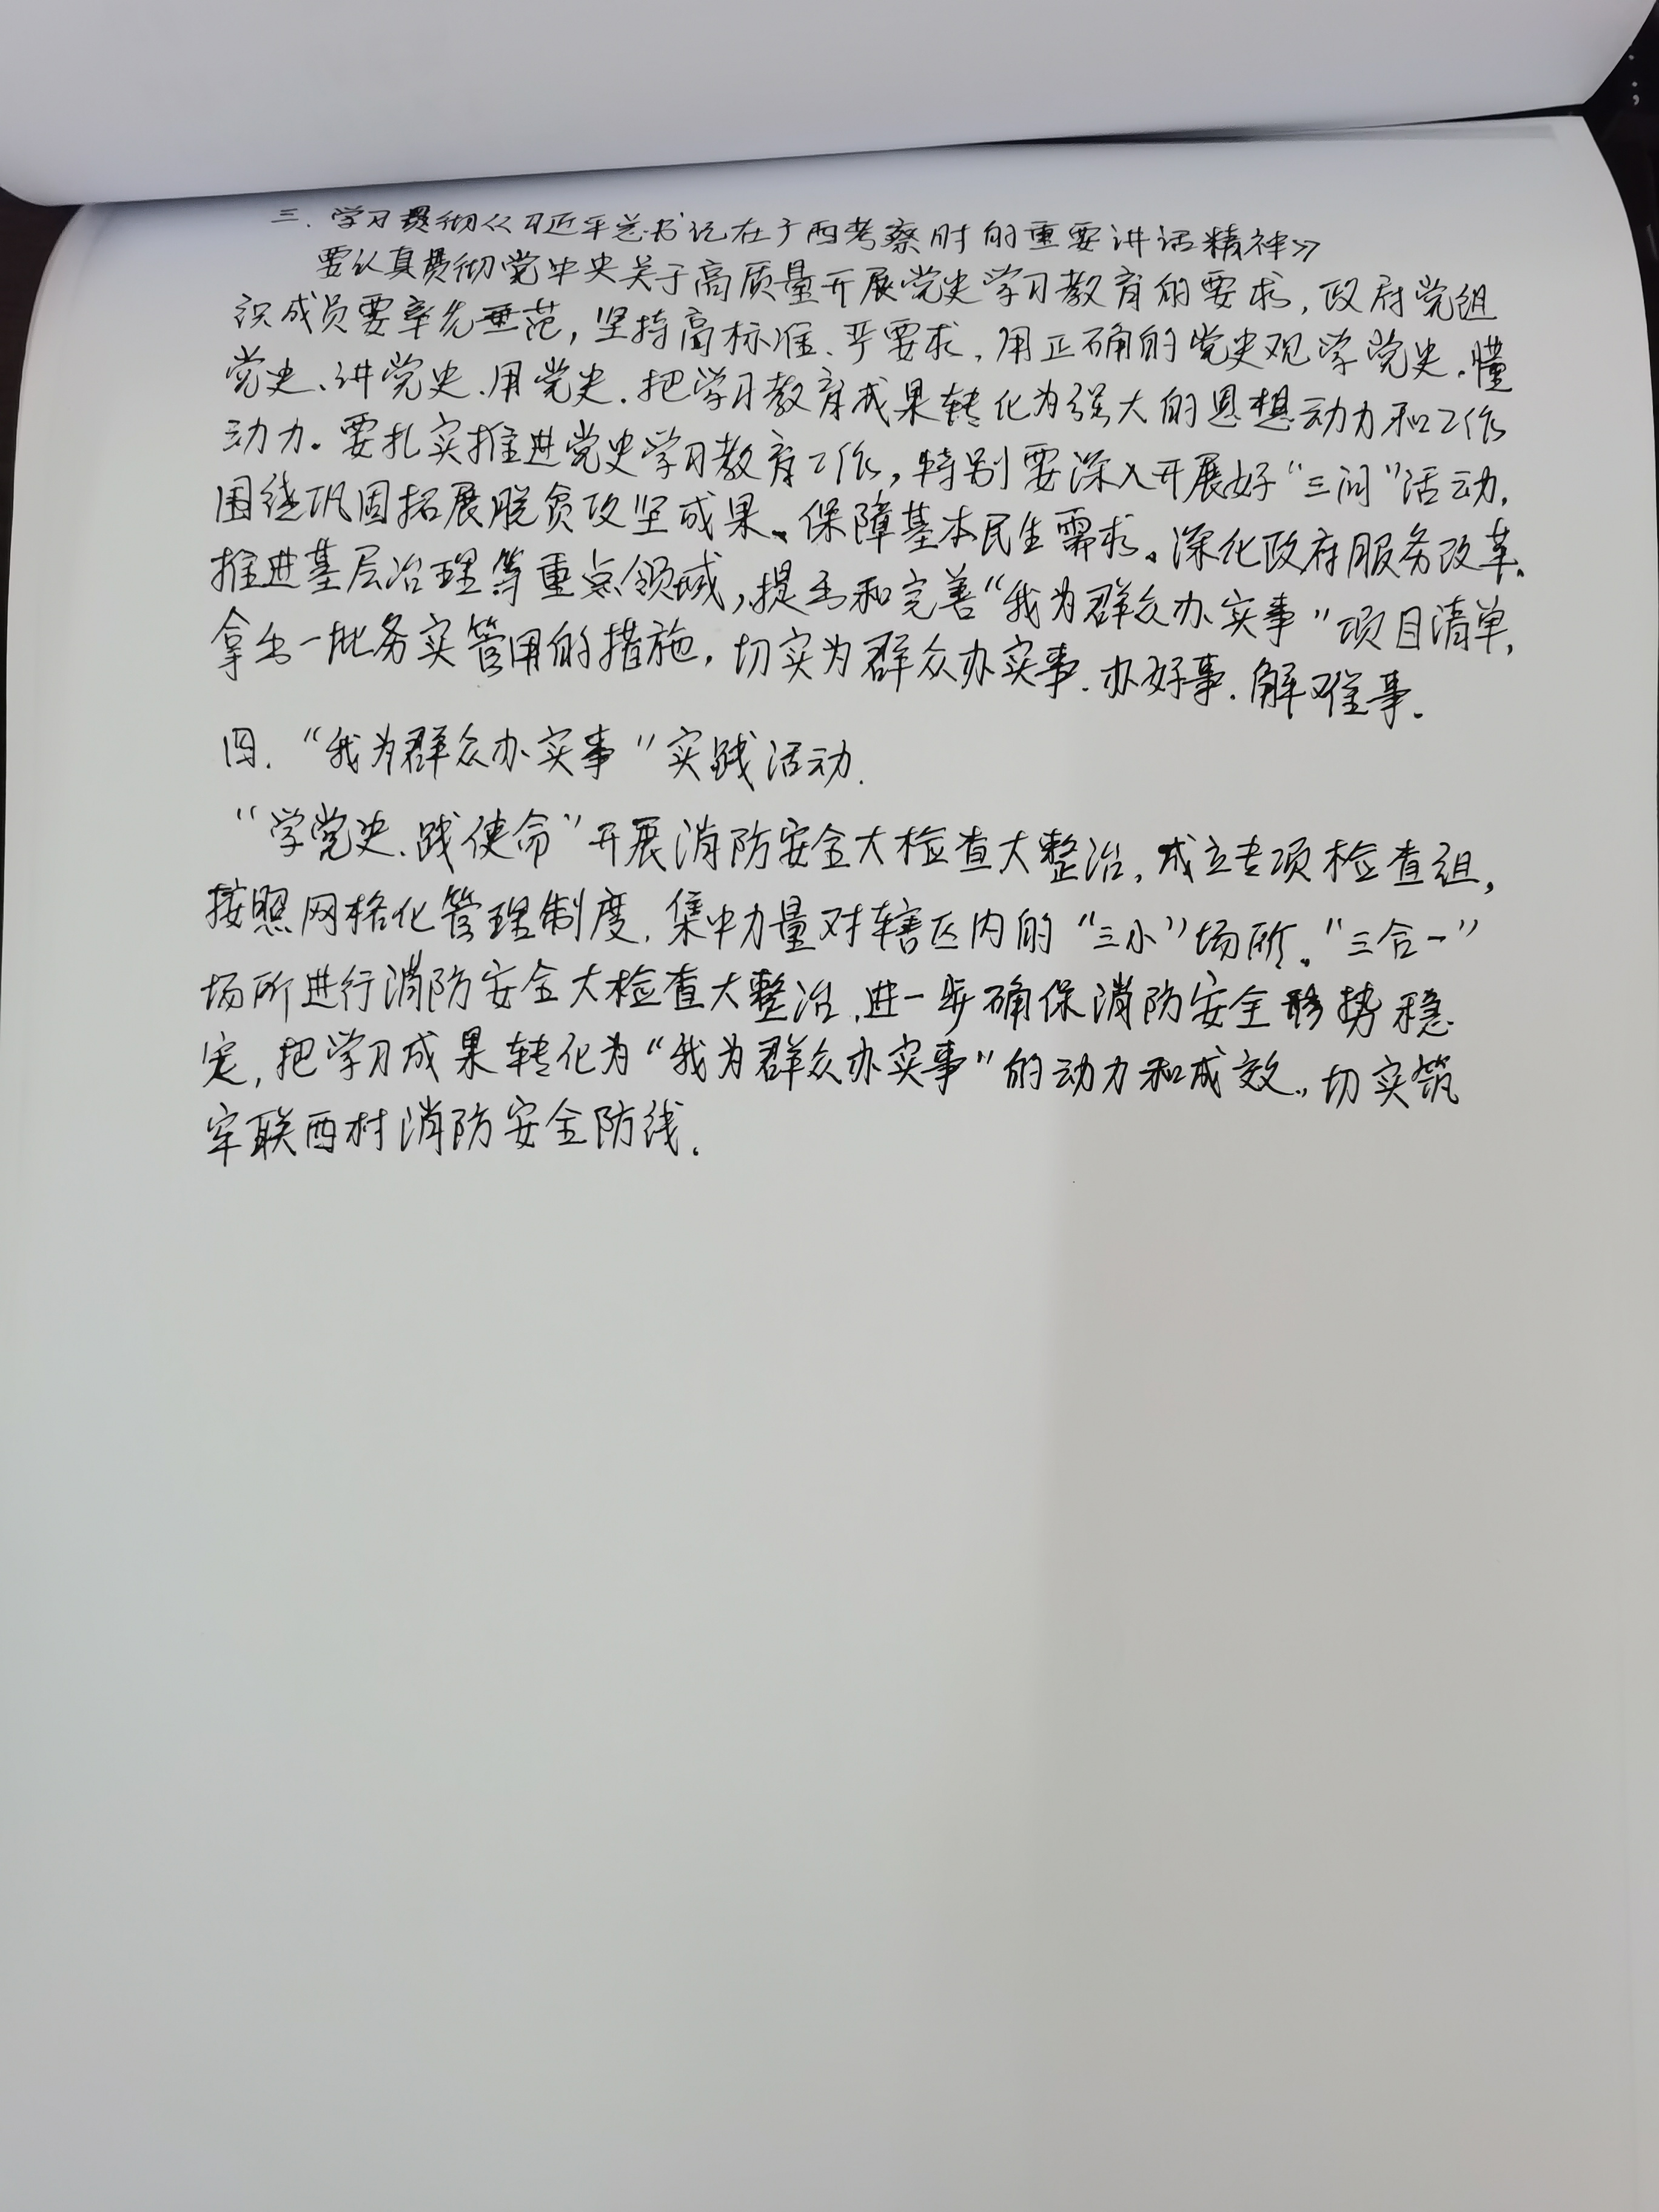 三.学习贯彻《习近平总书记在广西考察时的重要讲话精神》
要认真贯彻党中央关于高质量开展党史学习教育的要求,政府党组
织成员要率先垂范,坚持高标准、严要求,用正确的党史观学党史、懂
党史、讲党史、用党史.把学习教育成果转化为强大的思想动力和工作
动力。要扎实推进党史学习教育工作,特别要深入开展好“三问”活动,
围绕巩固拓展脱贫攻坚成果、保障基本民生需求、深化政府服务改革、
推进基层治理等重点领域,提出和完善“我为群众办实事”项目清单,
拿出一批务实管用的措施,切实为群众办实事、办好事、解难事.
四.“我为群众办实事”实践活动.
“学党史、践使命”开展消防安全大检查大整治,成立专项检查组,
按照网格化管理制度,集中力量对辖区内的“三小”场所、“三合一”
场所进行消防安全大检查大整治,进一步确保消防安全形势稳
定,把学习成果转化为“我为群众办实事”的动力和成效.,切实筑
牢联西村消防安全防线.